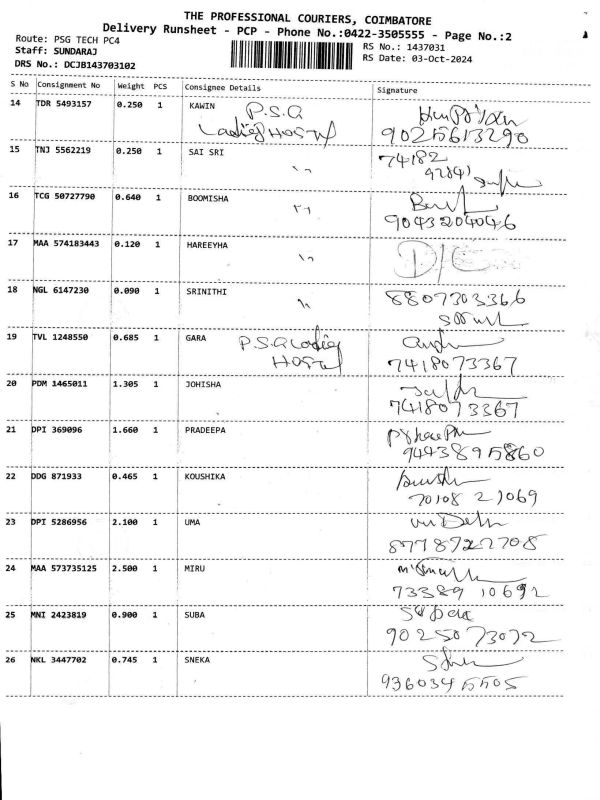 THE PROFESSIONAL COURIERS, COIMBATORE
Delivery Runsheet - PCP - Phone No.:0422-3505555 - Page No.:2
Route: PSG TECH PC4
Staff: SUNDARAJ
DRS No.: DCJB143703102
RS No.: 1437031
RS Date: 03-Oct-2024
S No Consignment No Weight PCS Consignee Details Signature
14 TDR 5493157 0.250 1 KAWIN P.S.G
Ladies Hostel 9025613290
15 TNJ 5562219 0.250 1 SAI SRI 74182
16 TCG 50727790 0.640 1 BOOMISHA
9043204046
17 MAA 574183443 0.120 1 HAREEYHA
18 NGL 6147230 0.090 1 SRINITHI 8807303366
19 TVL 1248550 0.685 1 GARA P.S.G Ladies
Hostel 7418073367
20 PDM 1465011 1.305 1 JOHISHA
7418073367
21 DPI 369096 1.660 1 PRADEEPA
9443895860
22 DDG 871933 0.465 1 KOUSHIKA
70108 21069
23 DPI 5286956 2.100 1 UMA
8778722708
24 MAA 573735125 2.500 1 MIRU
73389 10692
25 MNI 2423819 0.900 1 SUBA
90250 73072
26 NKL 3447702 0.745 1 SNEKA
9360345505